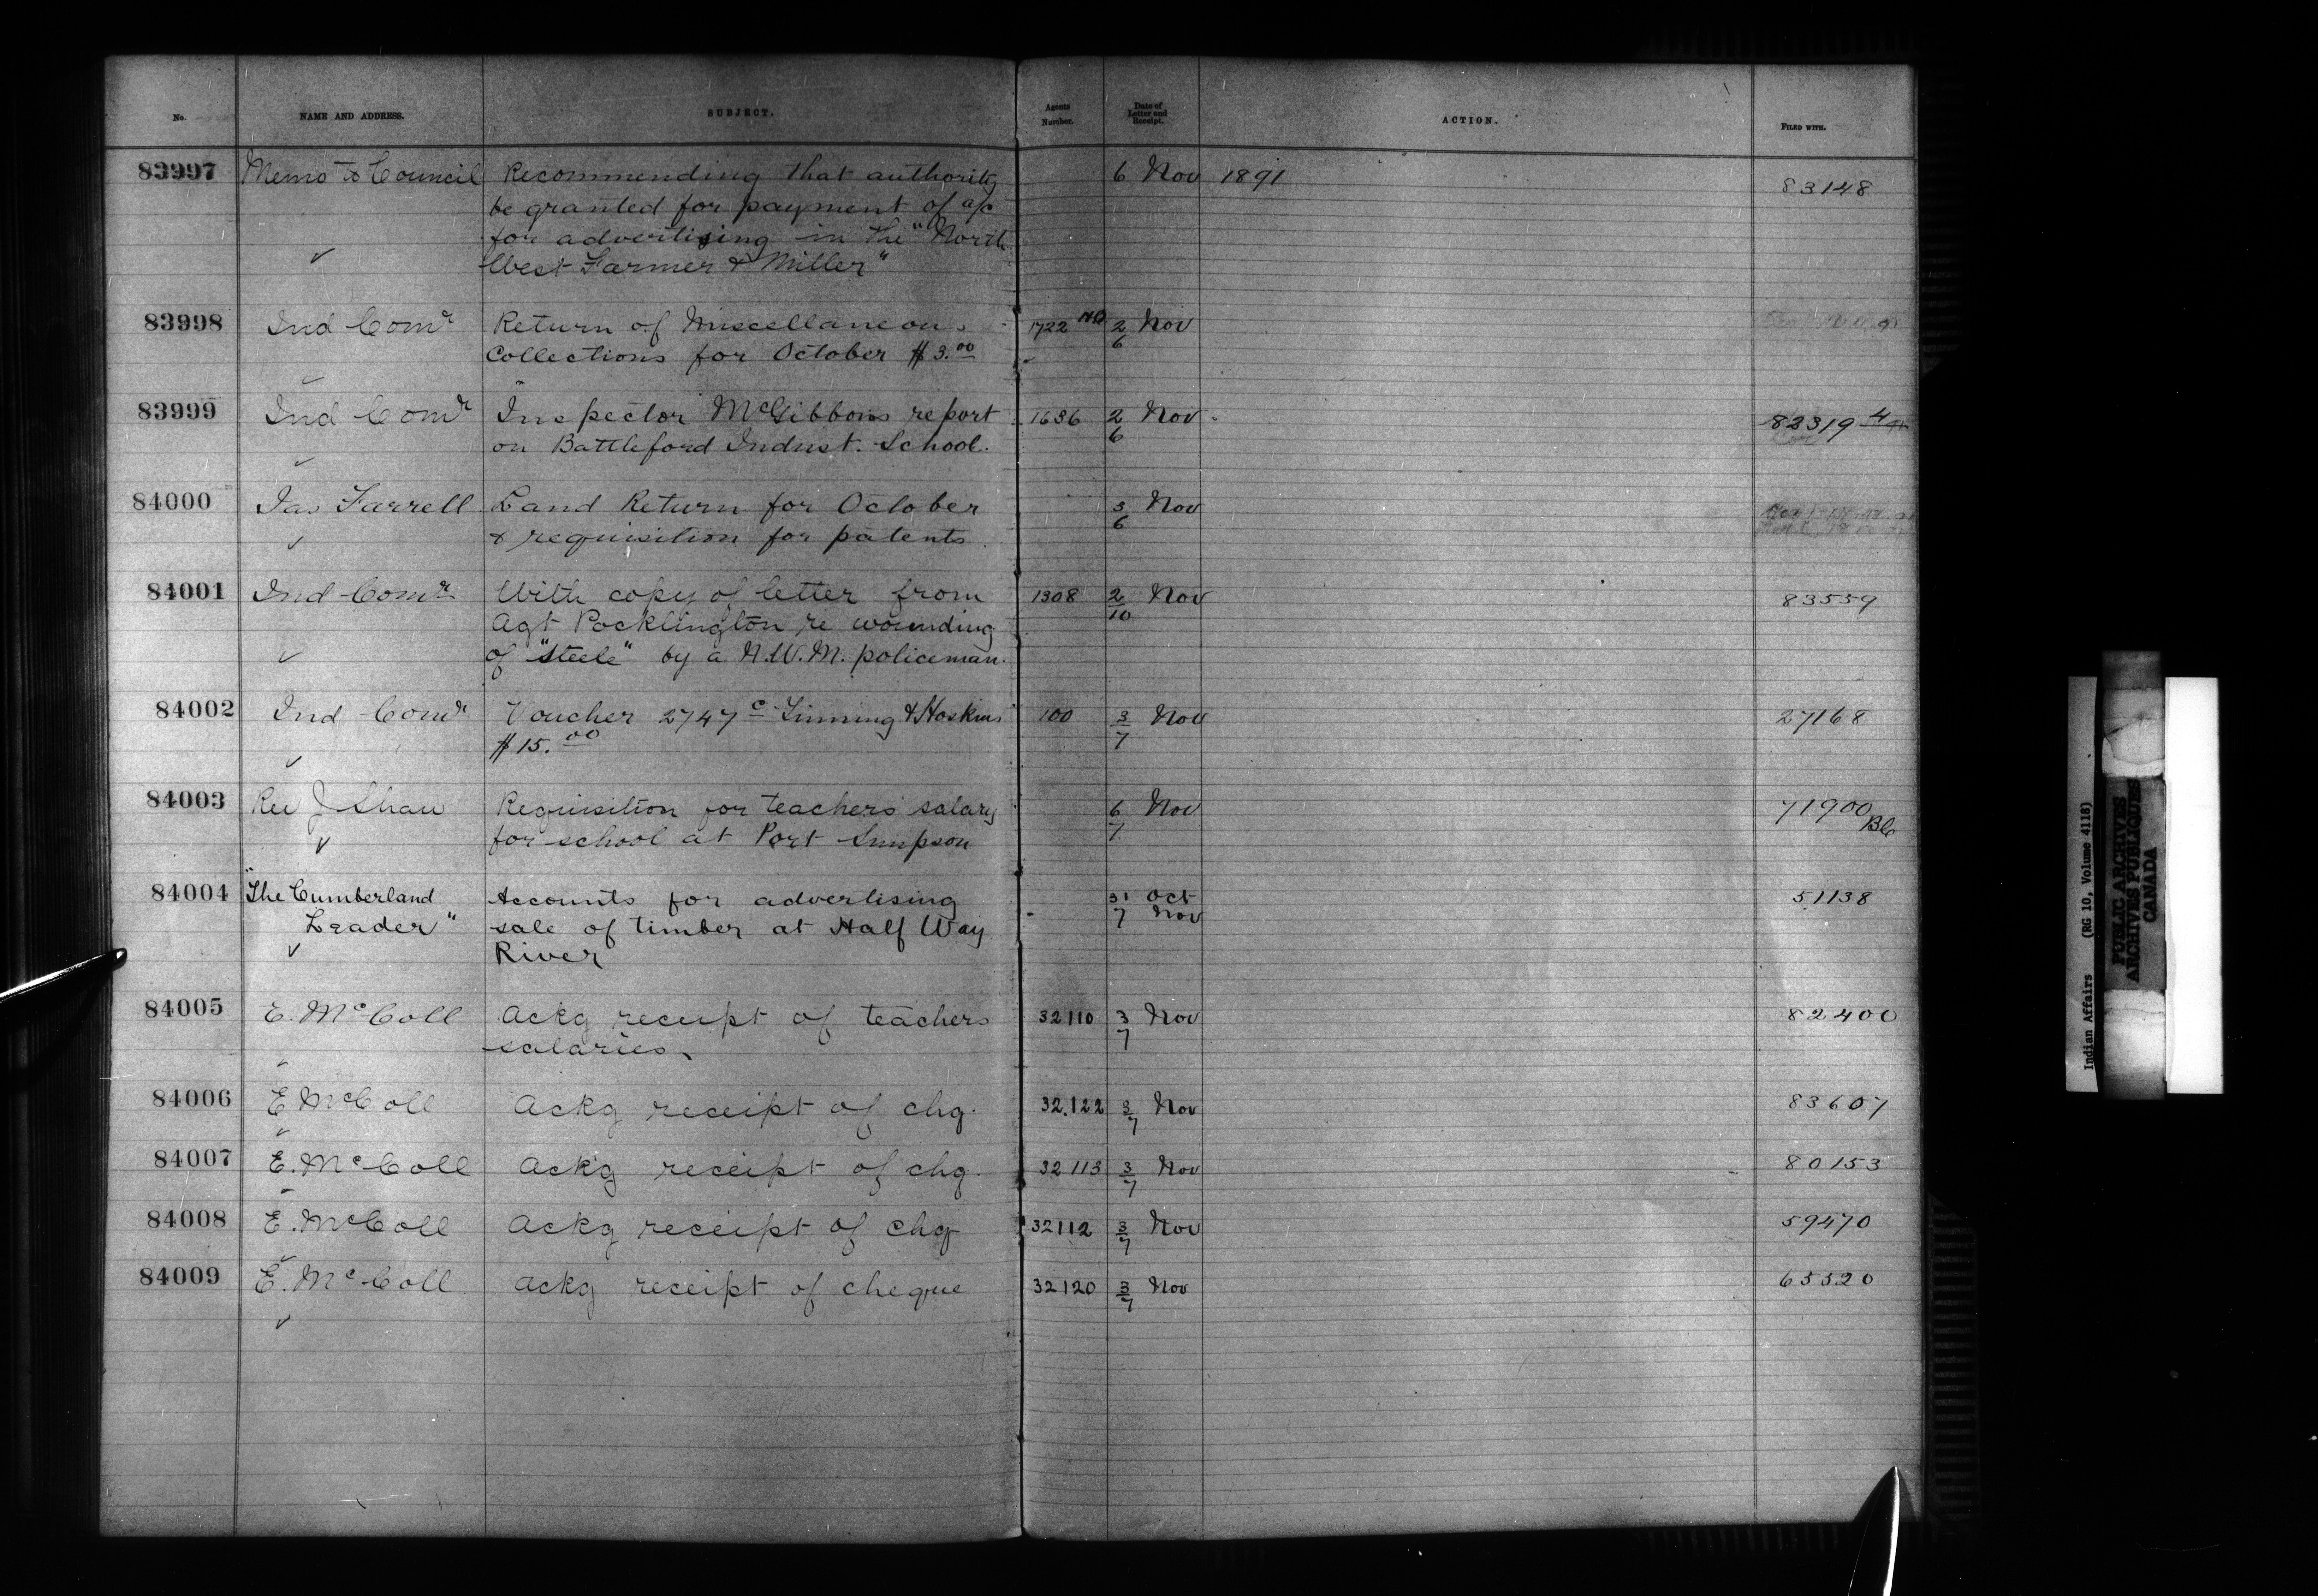 No. NAME AND ADDRESS. SUBJECT. Agents Number. Date of Letter and Receipt. ACTION. FILED WITH.
83997 Memo to Council Recommending that authority 6 Nov 1891 83148
be granted for payment of a/c
for advertising in the "North
West Farmer & Miller"
83998 Ind Comr Return of Miscellaneous 1722 2 Nov
Collections for October $3.00 6
83999 Ind Comr Inspector McGibbons report 1636 2 Nov 82319-4
on Battleford Indust. School. 6
84000 Jas Farrell Land Return for October 3 Nov
& requisition for patents. 6
84001 Ind Comr With copy of letter from 1308 2 Nov 83559
Agt Pocklington re wounding 10
of "Steele" by a N.W.M. policeman.
84002 Ind Comr Voucher 2747 c Linning & Hoskins 100 3 Nov 27168
$15.00 7
84003 Rev J Shaw Requisition for teachers salary 6 Nov 71900
for school at Port Simpson 7 BC
84004 "The Cumberland Accounts for advertising 31 Oct 51138
Leader" sale of timber at Half Way 7 Nov
River
84005 E. McColl Ackg receipt of teachers 32110 3 Nov 82400
salaries. 7
84006 E McColl Ackg receipt of chq. 32.122 3/7 Nov 83607
84007 E. McColl Ackg receipt of chq. 32113 3/7 Nov 80153
84008 E. McColl Ackg receipt of chq 32112 3/7 Nov 59470
84009 E. McColl Ackg receipt of cheque 32120 3/7 Nov 63520
Indian Affairs (RG 10, Volume 4118)
PUBLIC ARCHIVES
ARCHIVES PUBLIQUES
CANADA